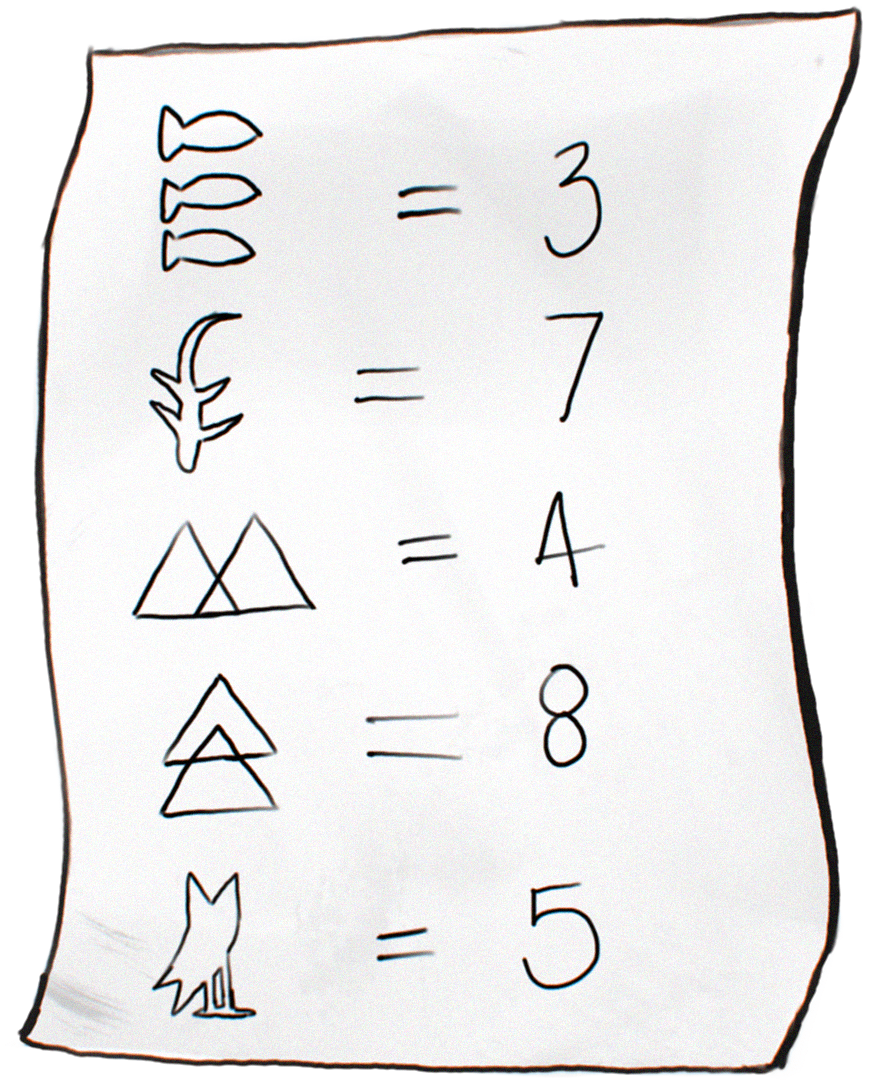 = 3
= 7
= 4
= 8
= 5